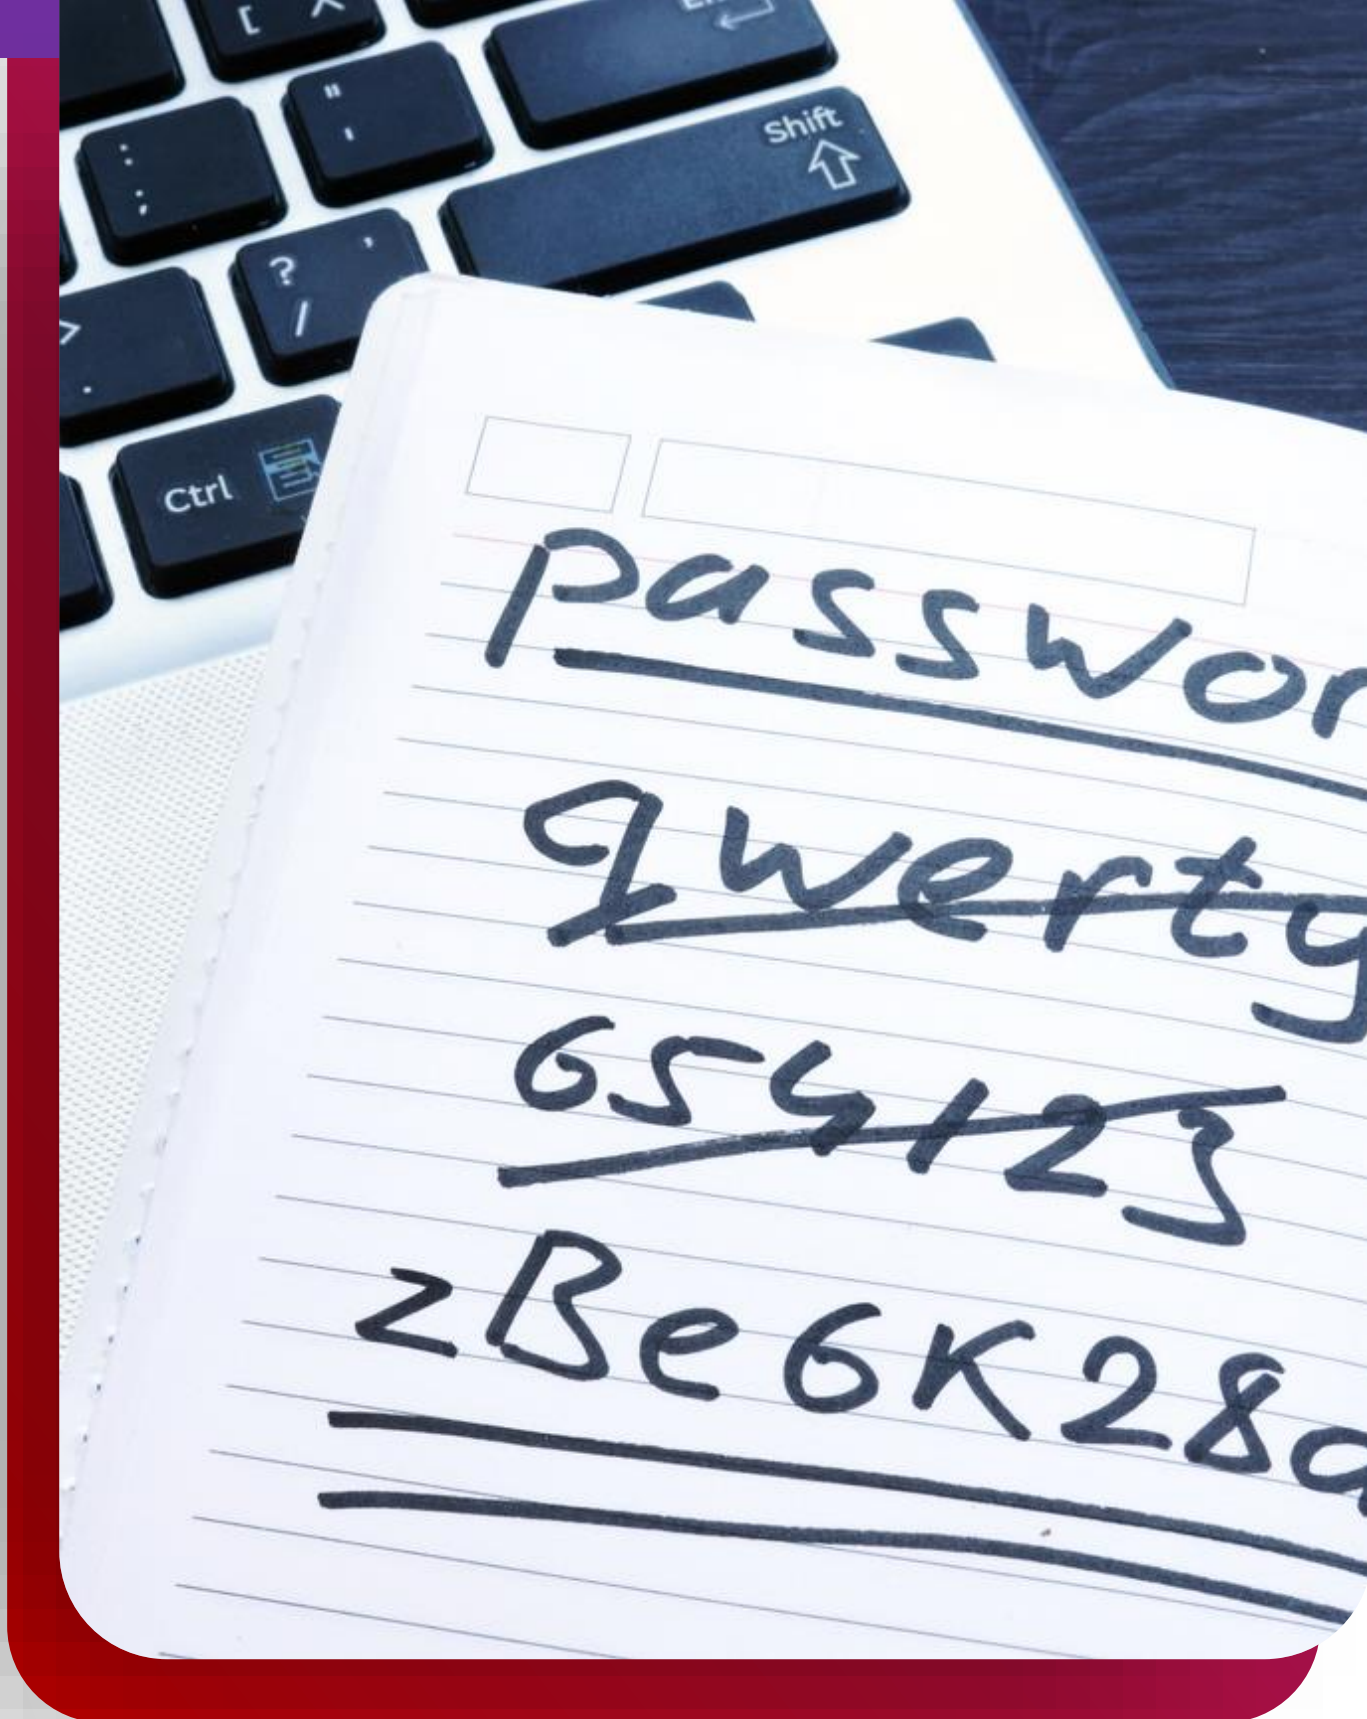 [ ^
" '
Shift
: ;
? /
> .
Ctrl
passwor
qwerty
654123
zBe6K28